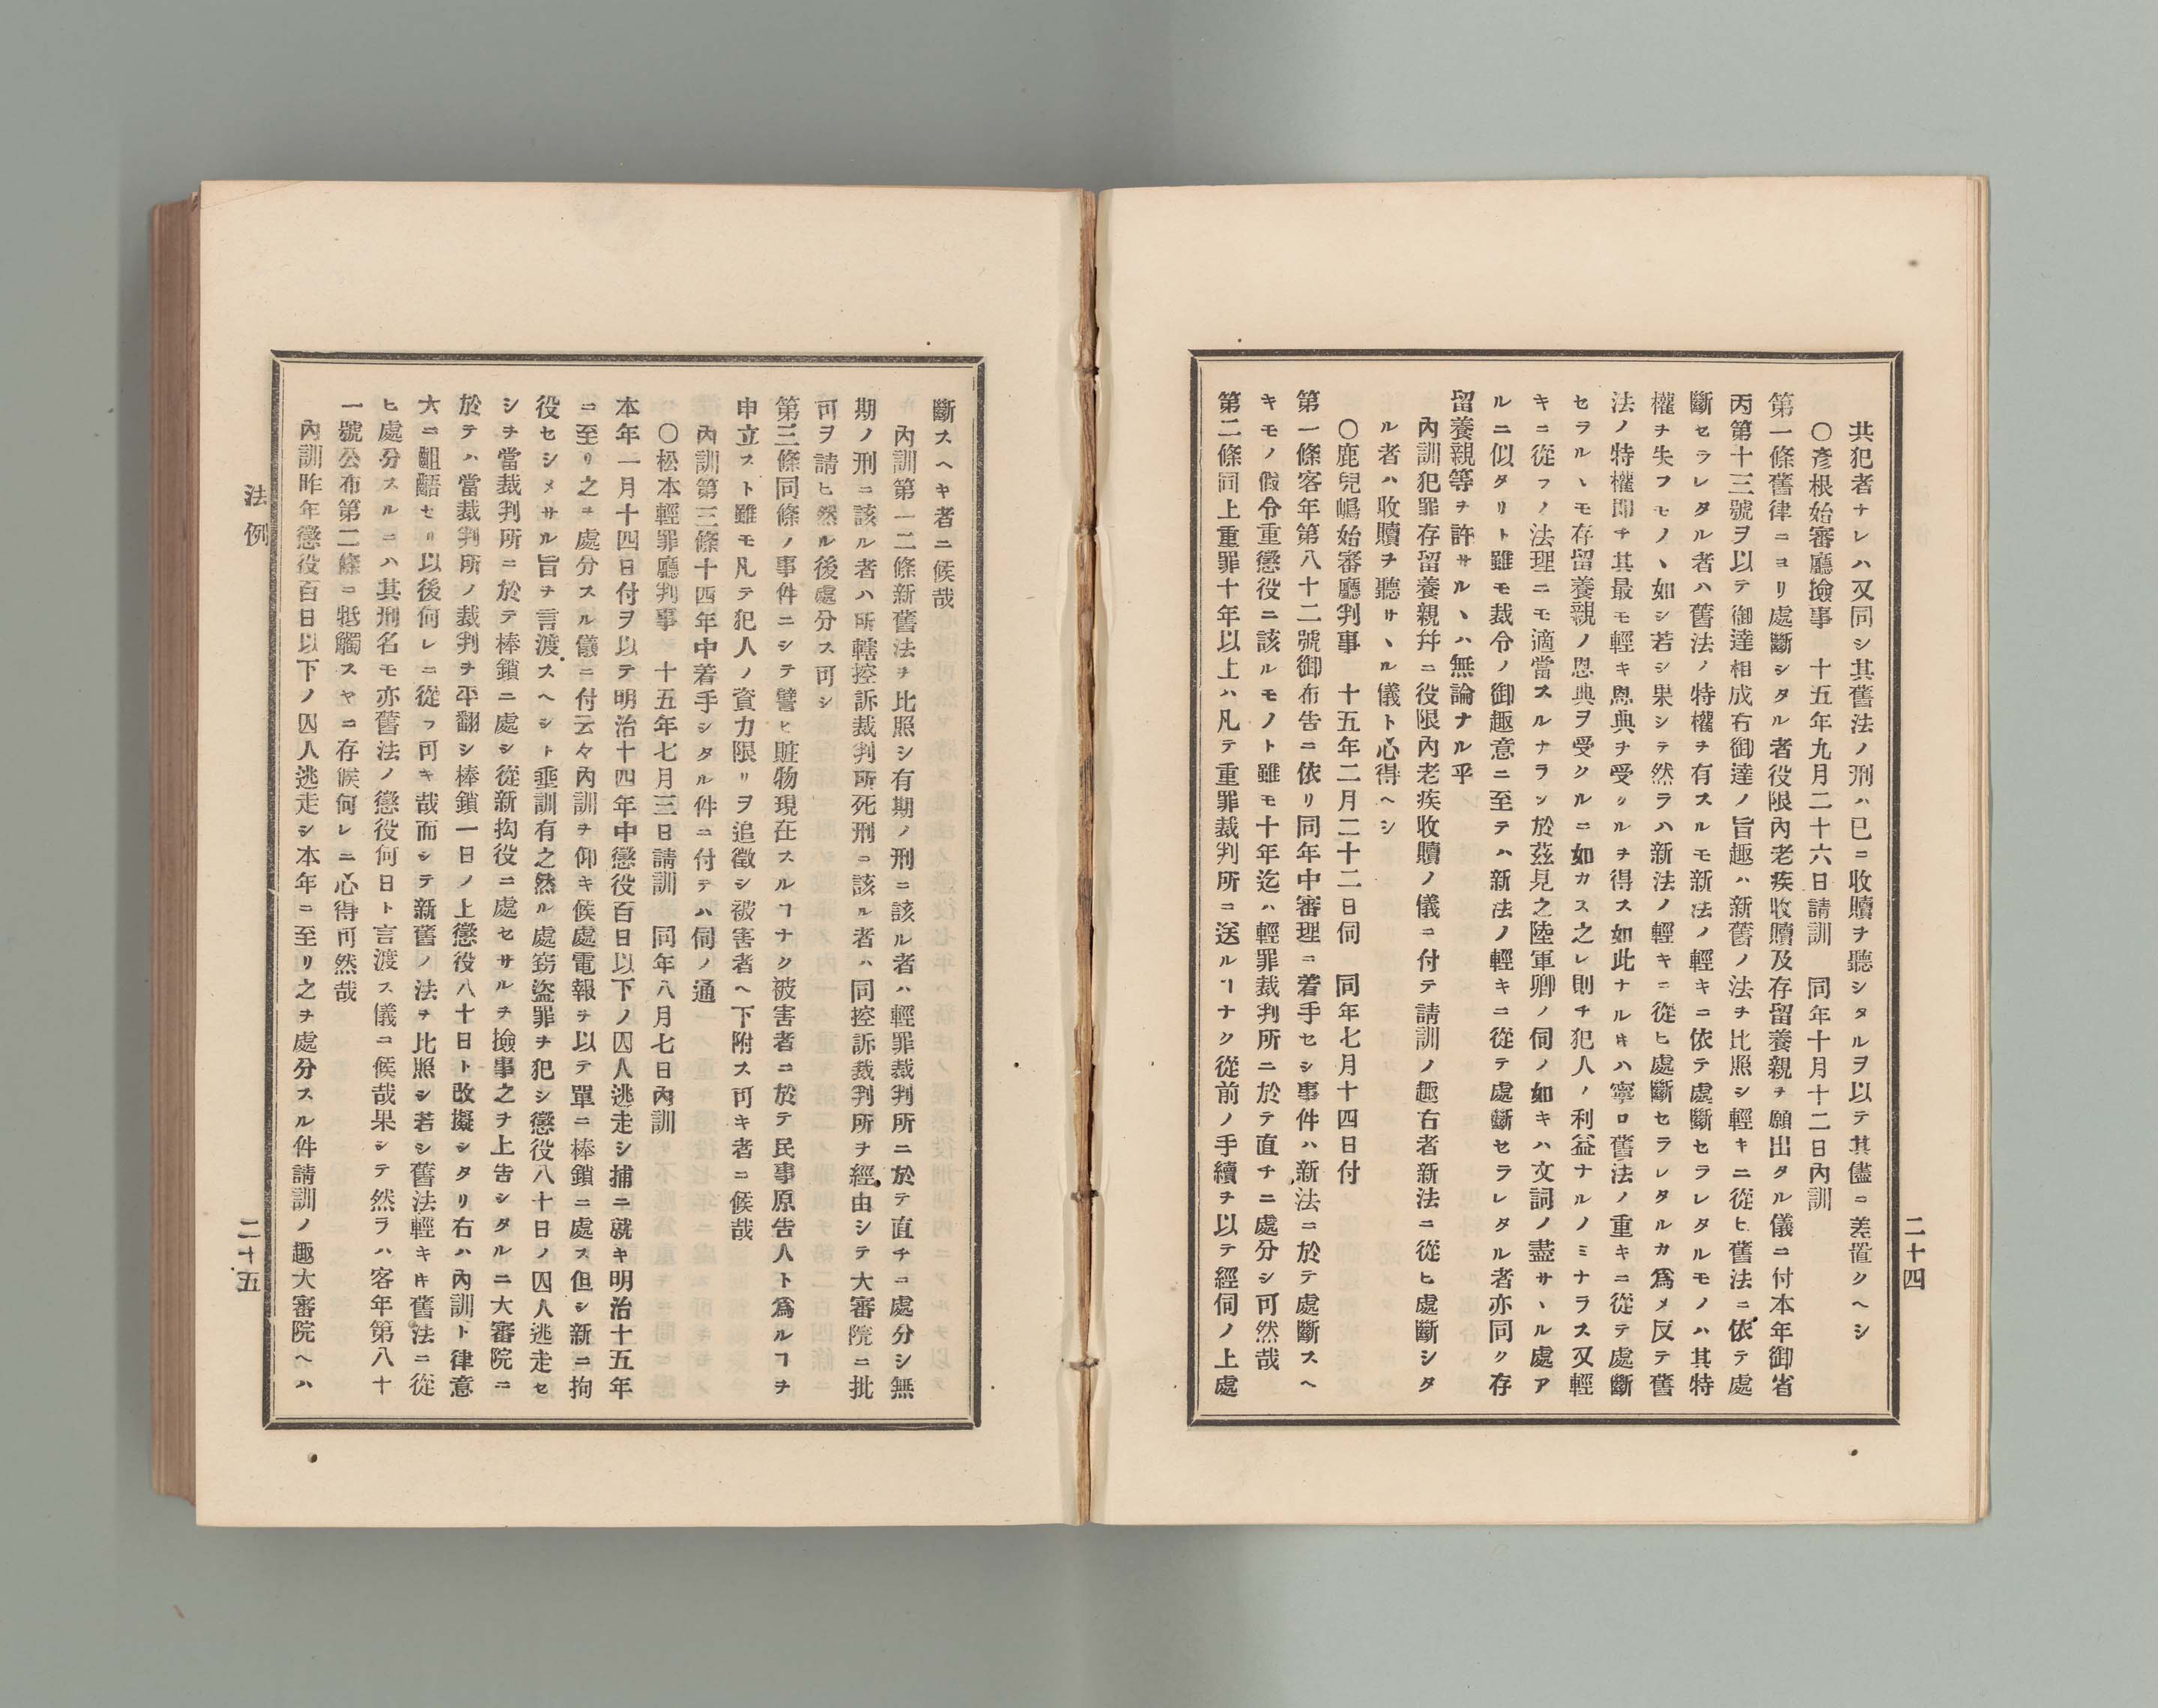 二十四
共犯者ナレハ又同シ其舊法ノ刑ハ已ニ收贖ヲ聽シタルヲ以テ其儘ニ差置クヘシ
〇彥根始審廳撿事　十五年九月二十六日請訓　同年十月十二日內訓
第一條舊律ニヨリ處斷シタル者役限內老疾收贖及存留養親ヲ願出タル儀ニ付本年御省
丙第十三號ヲ以テ御達相成右御達ノ旨趣ハ新舊ノ法ヲ比照シ輕キニ從ヒ舊法ニ依テ處
斷セラレタル者ハ舊法ノ特權ヲ有スルモ新法ノ輕キニ依テ處斷セラレタルモノハ其特
權ヲ失フモノヽ如シ若シ果シテ然ラハ新法ノ輕キニ從ヒ處斷セラレタルカ爲メ反テ舊
法ノ特權卽チ其最モ輕キ恩典ヲ受クルヲ得ス如此ナルキハ寧ロ舊法ノ重キニ從テ處斷
セラルヽモ存留養親ノ恩典ヲ受クルニ如カス之レ則チ犯人ノ利益ナルノミナラス又輕
キニ從フノ法理ニモ適當スルナラン於茲見之陸軍卿ノ伺ノ如キハ文詞ノ盡サヽル處ア
ルニ似タリト雖モ裁令ノ御趣意ニ至テハ新法ノ輕キニ從テ處斷セラレタル者亦同ク存
留養親等ヲ許サルヽハ無論ナル乎
內訓犯罪存留養親幷ニ役限內老疾收贖ノ儀ニ付テ請訓ノ趣右者新法ニ從ヒ處斷シタ
ル者ハ收贖ヲ聽サヽル儀ト心得ヘシ
〇鹿兒嶋始審廳判事　十五年二月二十二日伺　同年七月十四日付
第一條客年第八十二號御布告ニ依リ同年中審理ニ着手セシ事件ハ新法ニ於テ處斷スヘ
キモノ假令重懲役ニ該ルモノト雖モ十年迄ハ輕罪裁判所ニ於テ直チニ處分シ可然哉
第二條同上重罪十年以上ハ凡テ重罪裁判所ニ送ルヿナク從前ノ手續ヲ以テ經伺ノ上處
斷スヘキ者ニ候哉
內訓第一二條新舊法ヲ比照シ有期ノ刑ニ該ル者ハ輕罪裁判所ニ於テ直チニ處分シ無
期ノ刑ニ該ル者ハ所轄控訴裁判所死刑ニ該ル者ハ同控訴裁判所ヲ經由シテ大審院ニ批
可ヲ請ヒ然ル後處分ス可シ
第三條同條ノ事件ニシテ譬ヒ賍物現在スルヿナク被害者ニ於テ民事原告人ト爲ルヿヲ
申立スト雖モ凡テ犯人ノ資力限リヲ追徵シ被害者ヘ下附ス可キ者ニ候哉
內訓第三條十四年中着手シタル件ニ付テハ伺ノ通
〇松本輕罪廳判事　十五年七月三日請訓　同年八月七日內訓
本年一月十四日付ヲ以テ明治十四年中懲役百日以下ノ囚人逃走シ捕ニ就キ明治十五年
ニ至リ之ヲ處分スル儀ニ付云々內訓ヲ仰キ候處電報ヲ以テ單ニ棒鎖ニ處ス但シ新ニ拘
役セシメサル旨ヲ言渡スヘシト垂訓有之然ル處竊盜罪ヲ犯シ懲役八十日ノ囚人逃走セ
シヲ當裁判所ニ於テ棒鎖ニ處シ從新拘役ニ處セサルヲ撿事之ヲ上吿シタルニ大審院ニ
於テハ當裁判所ノ裁判ヲ平翻シ棒鎖一日ノ上懲役八十日ト改擬シタリ右ハ內訓ト律意
大ニ齟齬セリ以後何レニ從フ可キ哉而シテ新舊ノ法ヲ比照シ若シ舊法輕キキ舊法ニ從
ヒ處分スルニハ其刑名モ亦舊法ノ懲役何日ト言渡ス儀ニ候哉果シテ然ラハ客年第八十
一號公布第二條ニ牴觸スヤニ存候何レニ心得可然哉
內訓昨年懲役百日以下ノ囚人逃走シ本年ニ至リ之ヲ處分スル件請訓ノ趣大審院ヘハ
法例
二十五